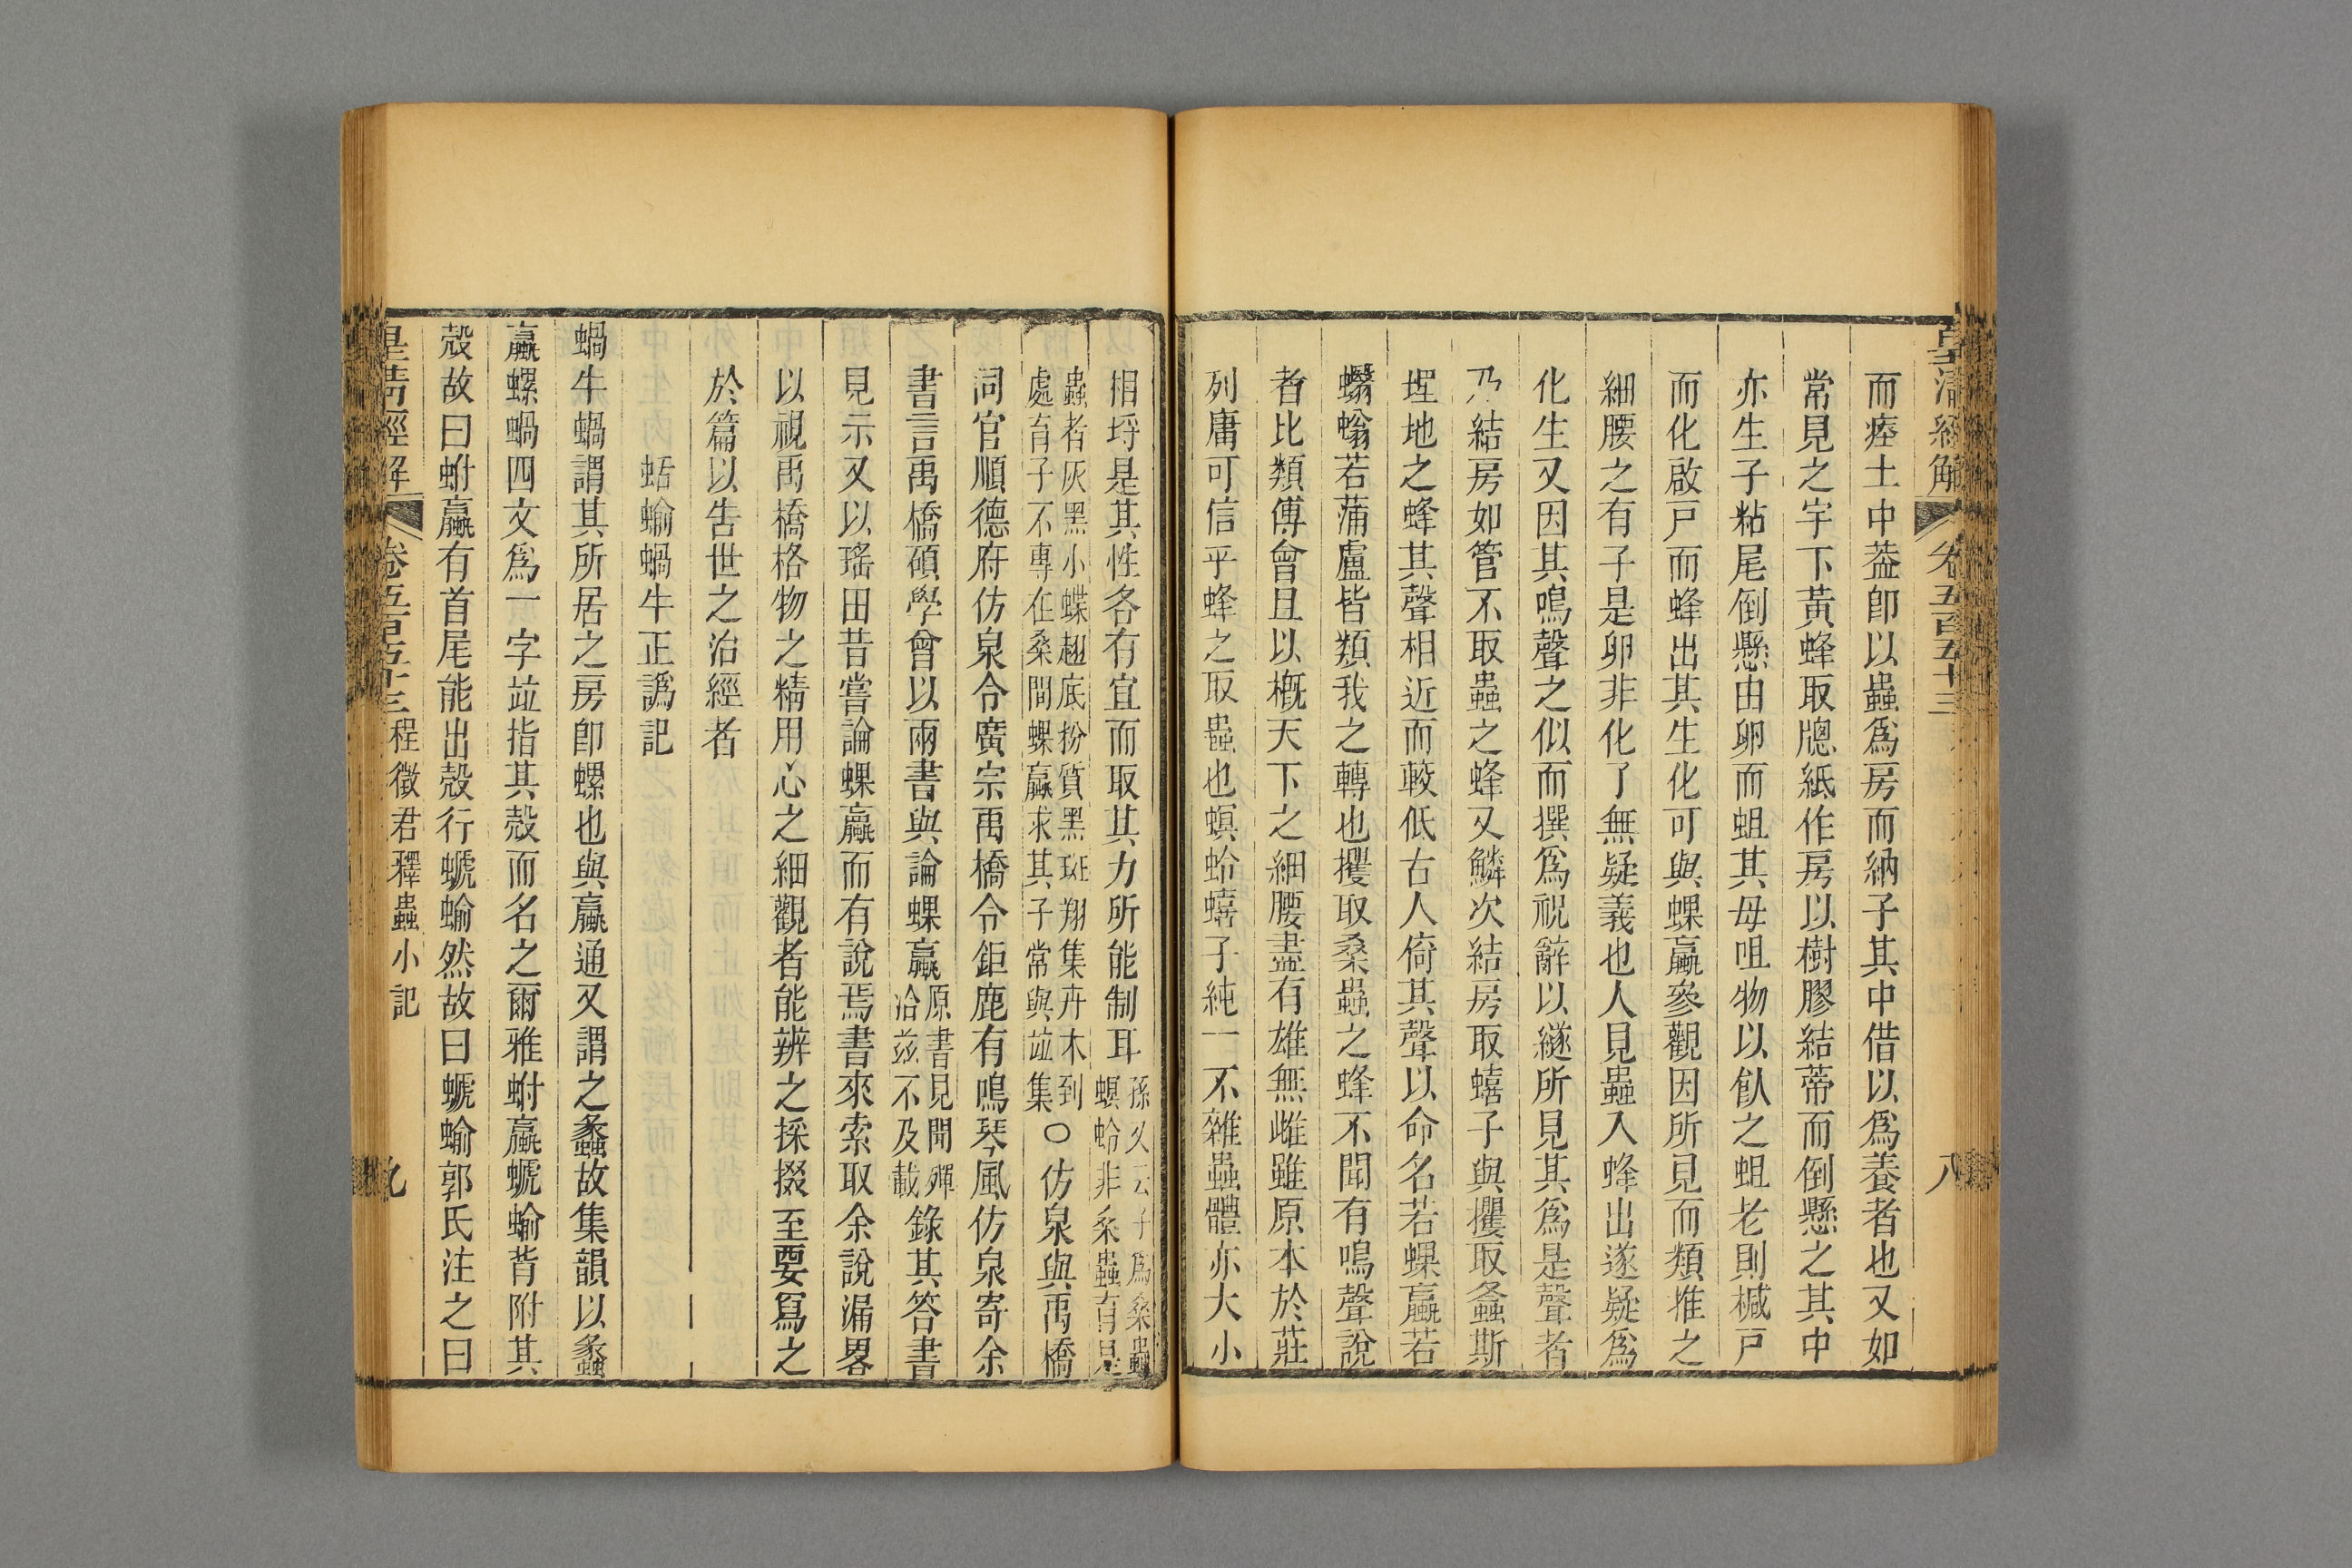 皇清經解 卷五百五十三 八
而瘞土中葢卽以蟲爲房而納子其中借以爲養者也又如
常見之宇下黃蜂取牕紙作房以樹膠結蒂而倒懸之其中
亦生子粘尾倒懸由卵而蛆其母咀物以飤之蛆老則椷戸
而化啟戸而蜂出其生化可與蜾蠃參觀因所見而類推之
細腰之有子是卵非化了無疑義也人見蟲入蜂出遂疑爲
化生又因其鳴聲之似而撰爲祝辭以繸所見其爲是聲者
乃結房如管不取蟲之蜂又鱗次結房取蟢子與攫取螽斯
埋地之蜂其聲相近而較低古人倚其聲以命名若蜾蠃若
蠮螉若蒲盧皆類我之轉也攫取桑蟲之蜂不聞有鳴聲說
者比類傅會且以槪天下之細腰盡有雄無雌雖原本於莊
列庸可信乎蜂之取蟲也螟蛉蟢子純一不雜蟲體亦大小
相埒是其性各有宜而取其力所能制耳孫乆云子爲桑蟲
螟蛉非桑蟲育是
蟲者灰黑小蝶翅底扮質黑斑翔集卉木到
處育子不專在桑間蜾蠃求其子常與竝集〇仿泉與禹橋
同官順德府仿泉令廣宗禹橋令鉅鹿有鳴琴風仿泉寄余
書言禹橋碩學曾以兩書與論蜾蠃原書見聞殫
洽茲不及載錄其答書
見示又以瑤田昔嘗論蜾蠃而有說焉書來索取余說漏畧
以視禹橋格物之精用心之細觀者能辨之採掇至要寫之
於篇以告世之治經者
蛞蝓蝸牛正譌記
蝸牛蝸謂其所居之房卽螺也與蠃通又謂之蠡故集韻以蠡
蠃螺蝸四文爲一字竝指其殼而名之爾雅蚹蠃螔蝓背附其
殼故曰蚹蠃有首尾能出殼行螔蝓然故曰螔蝓郭氏注之曰
皇清經解 卷五百五十三 程徵君釋蟲小記 九